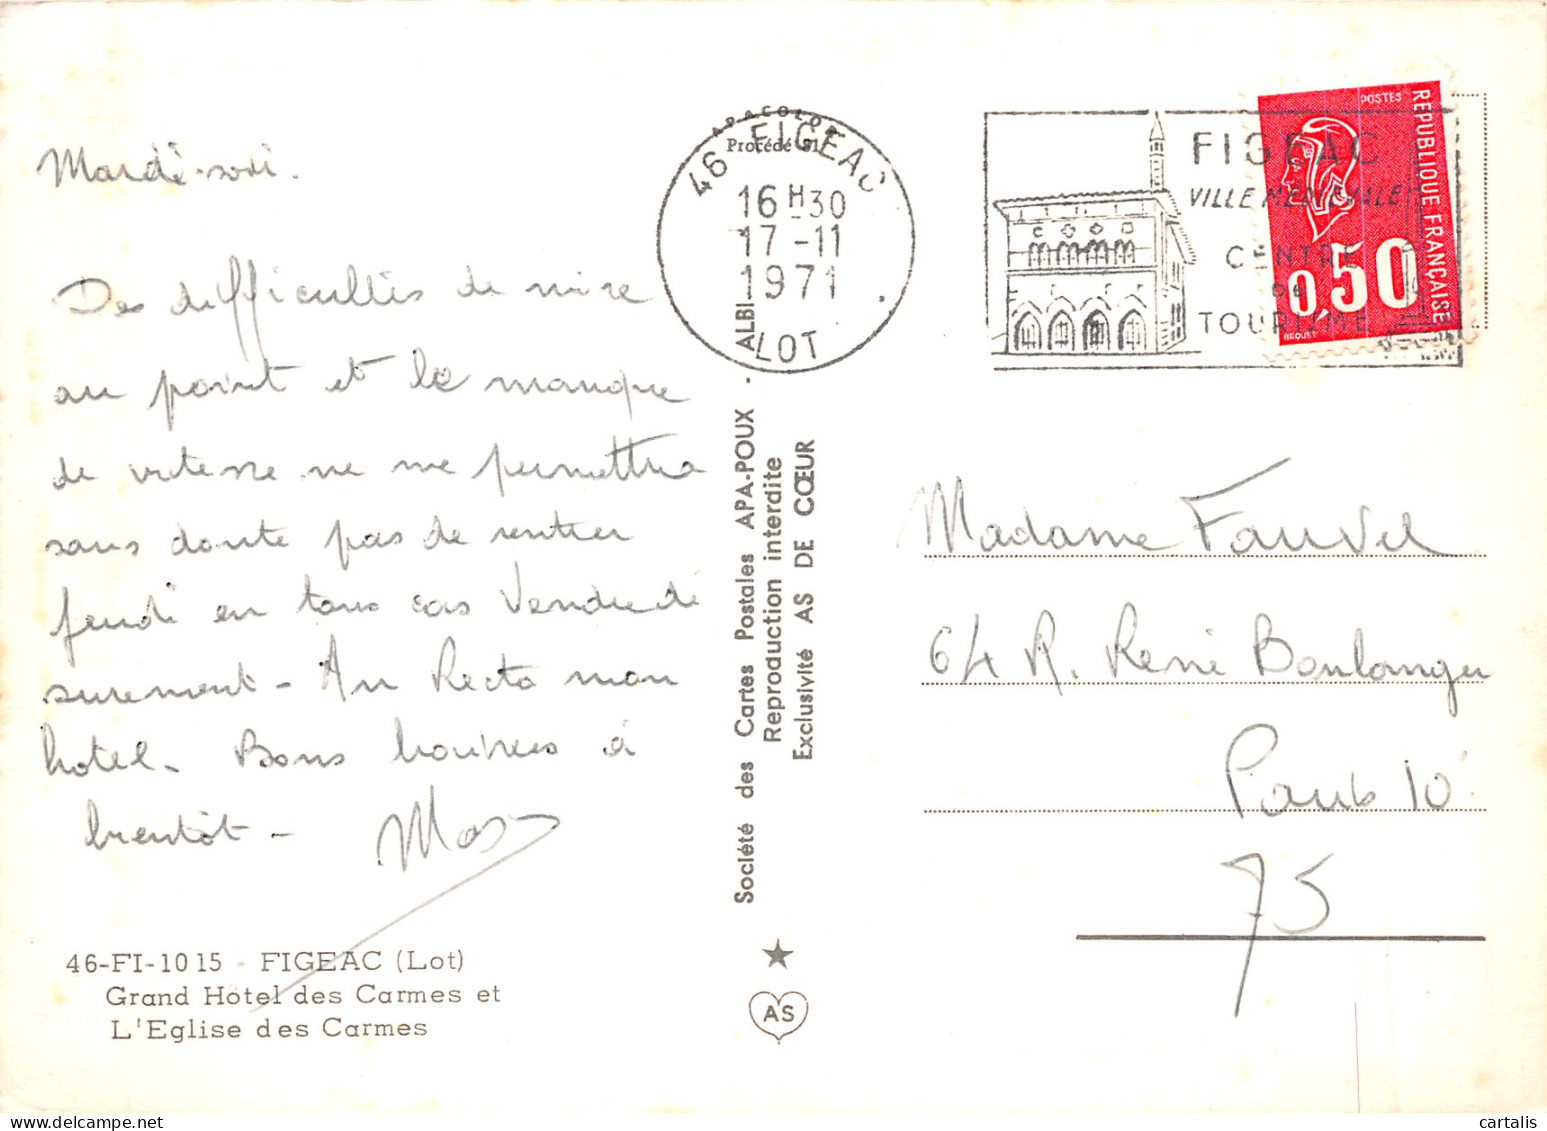 Mardi soir.
Des difficultés de mise
au point et le manque
de vitesse ne me permettra
sans doute pas de rentrer
jeudi en tous cas Vendredi
surement - Au Recto mon
hotel. Bons baisers à
bientôt -
46-FI-1015 - FIGEAC (Lot)
Grand Hôtel des Carmes et
L'Eglise des Carmes
APACOLOR
Procédé
46 FIGEAC
16 H 30
17 -11
1971
LOT
Société des Cartes Postales APA-POUX - ALBI
Reproduction interdite
Exclusivité AS DE CŒUR
AS
FIGEAC
VILLE MEDIEVALE
CENTRE
DE
TOURISME
POSTES
REPUBLIQUE FRANÇAISE
0,50
BEQUET
Madame Fauvel
64 R. René Boulanger
Paris 10
75
cartalis